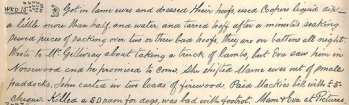 WED
Got in lame ewes and dressed their hoofs, used Coopers liquid dip –
a little more than half, and water and tarred hoof after a minute's soaking
sewed pieces of sacking over two or three bad hoofs, they are on battens all night.
Wrote to Mr Gillivray about taking a truck of lambs, but Eva saw him in
Norewood and he promised to come. She shifted lame ewes out of small
paddocks. John carted in two loads of firewood. Paid Mackies bik with £5-
cheque. Killed a SD ram for dogs, was bad with footrot. Mam & Eva at Pictures